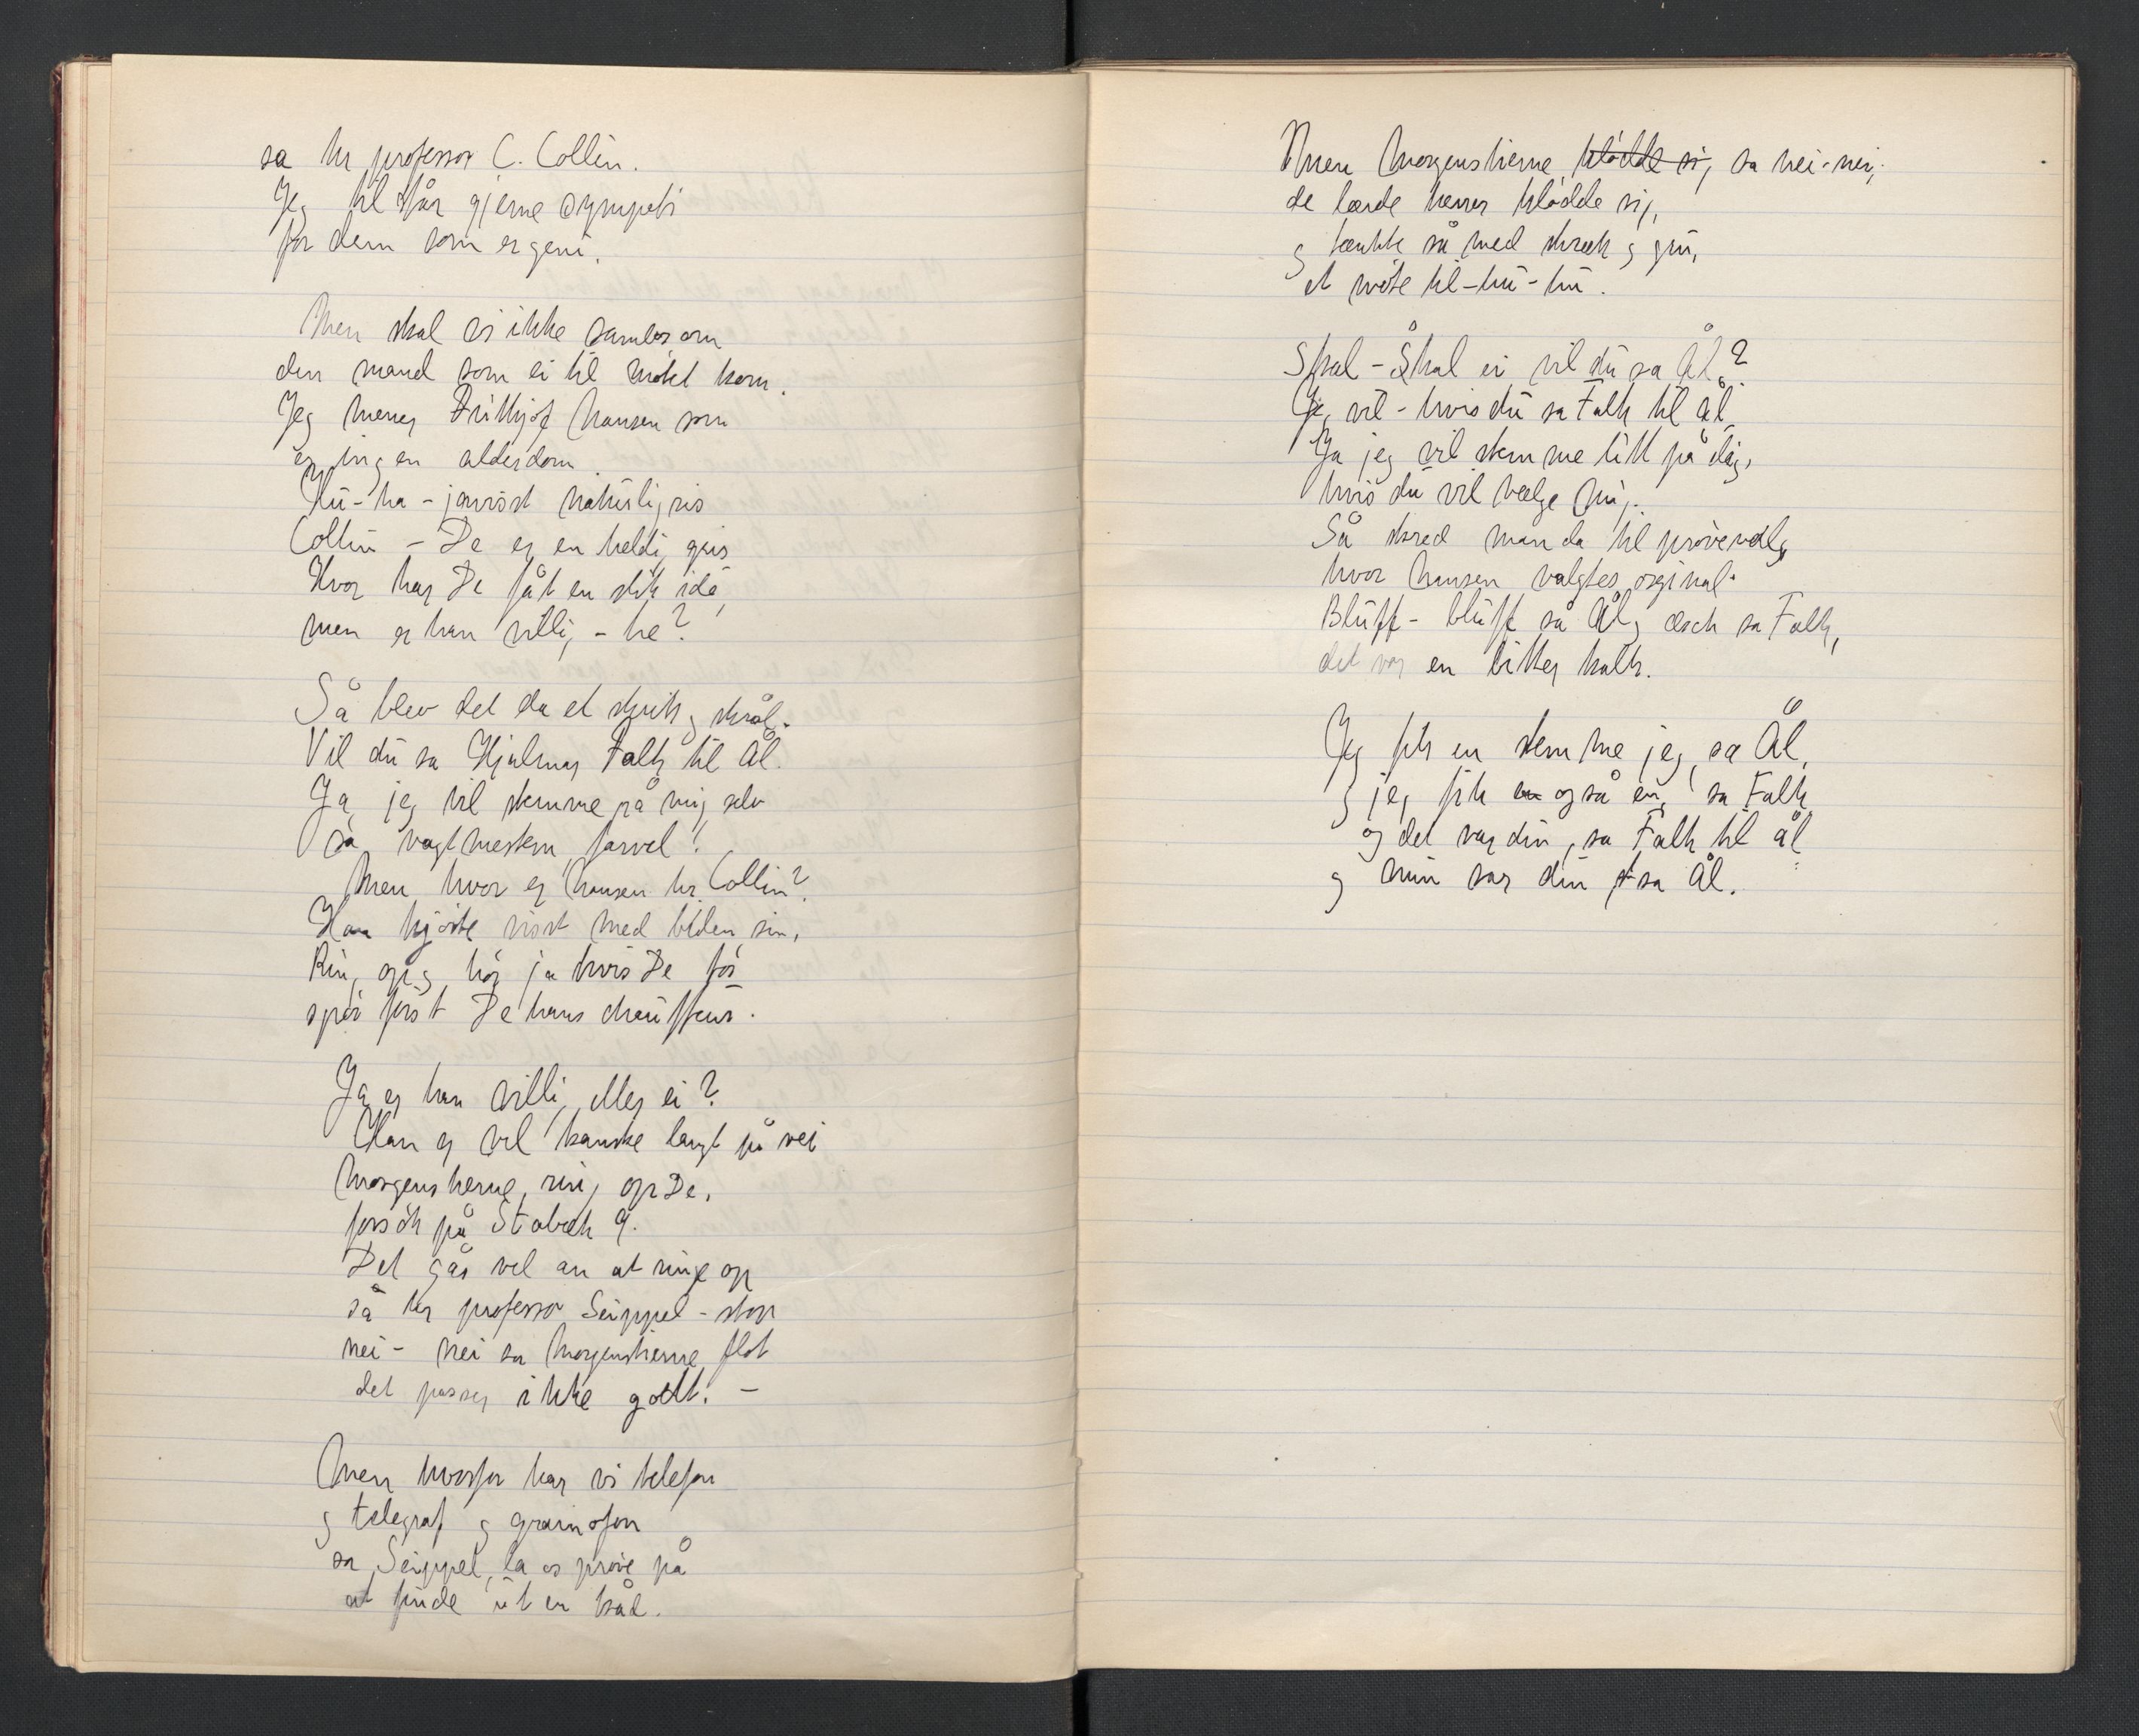 sa hr professor C. Collin.
Jeg får gjerne sympati
for dem som er geni.
Men skal vi ikke samles om
den mand som ei til møtet kom.
Jeg mener Fritthjof Nansen som
er ingen alderdom.
Hu-ha - javisst naturligvis
Collin - De er en heldig gris
Hvor har De fåt en slik ide,
men er han villig - he?
Så blev det da et skrik og skrål.
Vil du sa Hjalmar Falk til Ål.
Ja, jeg vil stemme på mig selv
sa vagtmesteren, farvel!
Men hvor er Nansen hr. Collin?
Han kjørte visst med bilen sin,
Ring op og hør ja hvis De tør
spør først De hans chauffeur.
Ja er han villig, eller ei?
Han er vel kanske langt på vei
Morgenstierne, ring op De,
forsøk på Stabæk 9.
Det går vel an at ringe op
sa hr professor Seippel - stop
nei - nei sa Morgenstierne flot
det passer ikke godt. -
Men hvorfor har vi telefon
og telegraf og gramofon
sa Seippel, la os prøve på
at finde ut en tråd.
Men Morgenstierne klødde sig sa nei-nei,
de lærde herrer klødde sig,
og tænkte så med skræk og gru,
et møte til - hu - hu.
Skal - Skal ei vil du sa Ål?
Jeg vil - hvis du sa Falk til Ål
Ja jeg vil stemme litt på dig,
hvis du vil vælge mig.
Så skred man da til prøvevalg
hvor Nansen valgtes, orginal.
Bluff - bluff sa Ål og æsch sa Falk,
det var en bitter kalk.
Jeg fik en stemme jeg, sa Ål,
og jeg fik en også en, sa Falk
og det var din, sa Falk til Ål
og min var din sa Ål.